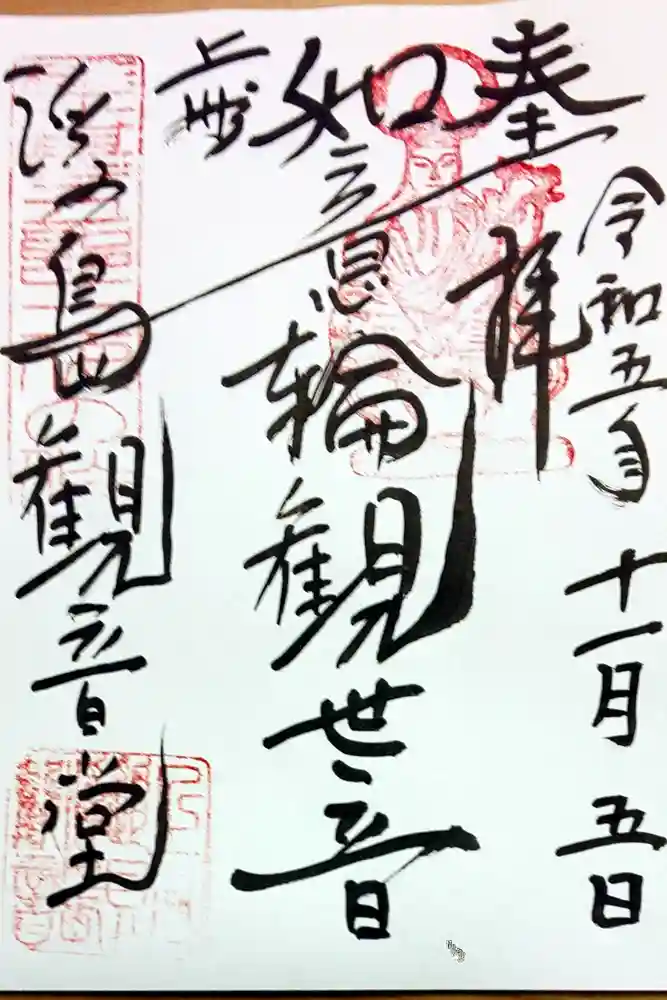 令和五年十一月五日
奉拝
如意輪観世音
上州
浮島観音堂